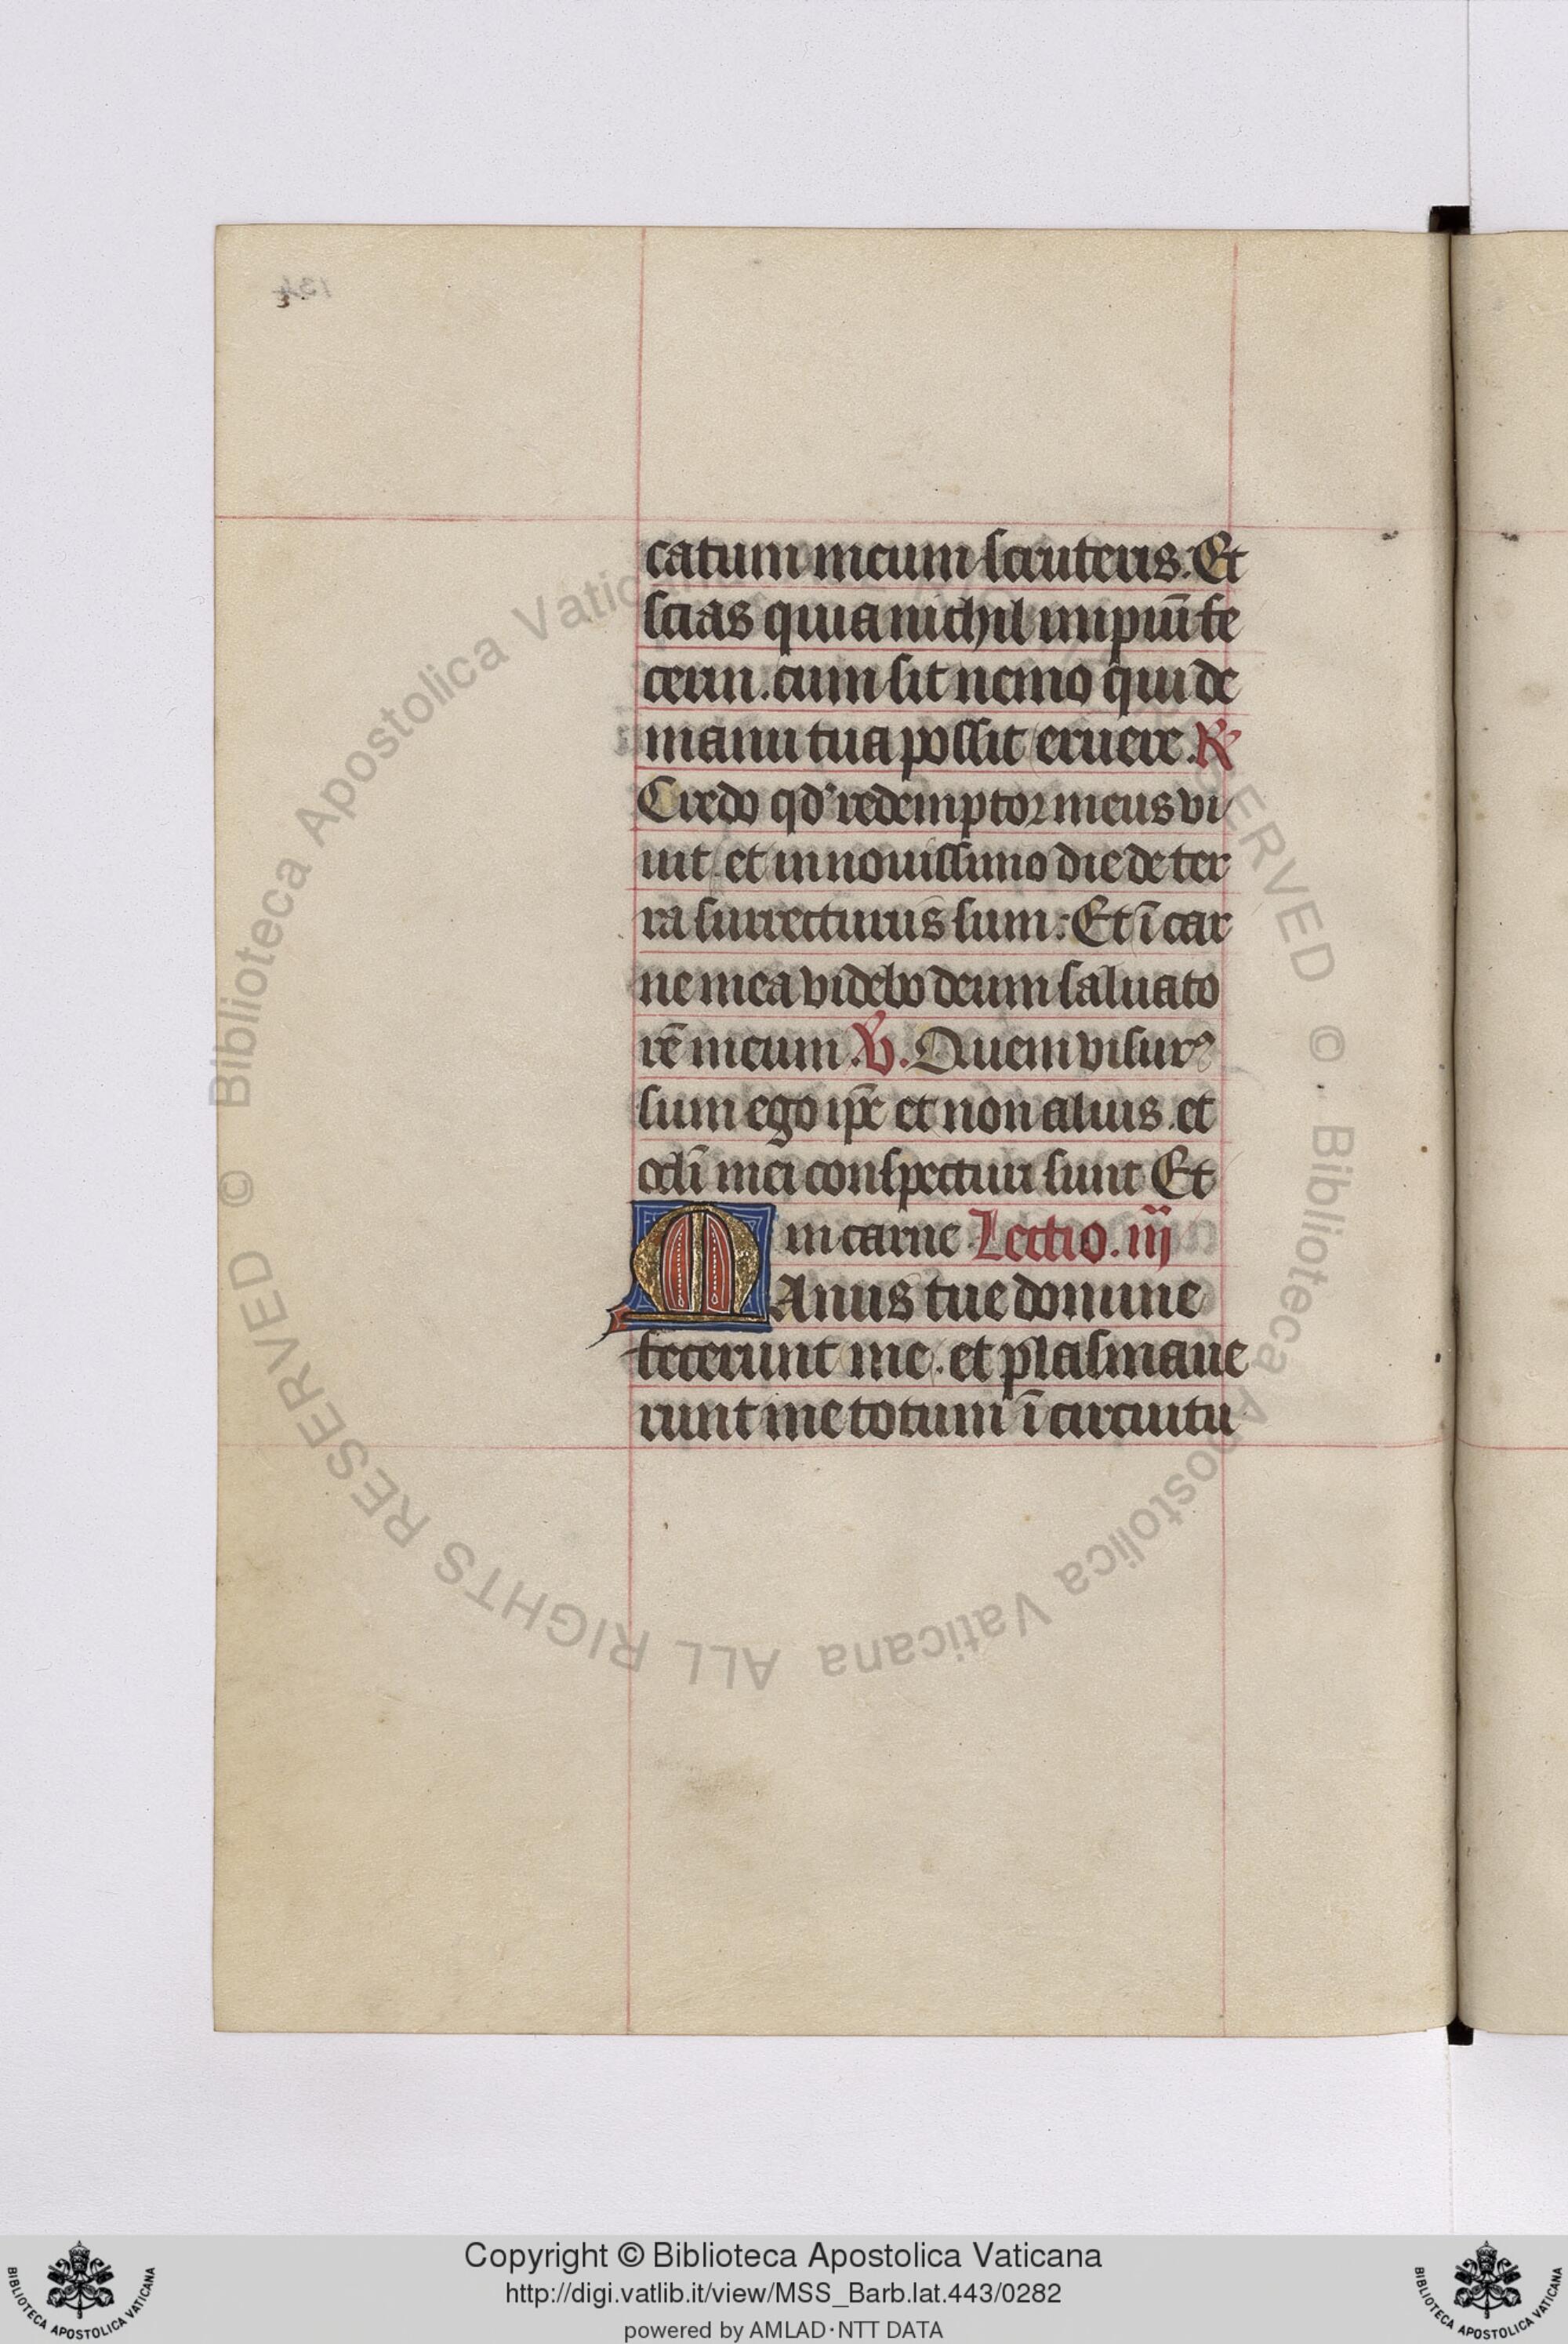 catum meum scruteris. Et
scias quia nichil impiū fe
cerim. cum sit nemo qui de
manu tua possit eruere. R
Credo qd' redemptor meus vi
uit. et in nouissimo die de ter
ra surrecturus sum: Et ī car
ne mea videbo deum saluato
rē meum. V. Quem visurꝰ
sum ego ip̄e et non alius. et
oc̄li mei conspecturi sunt Et
in carne. Lectio. iij
MAnus tue domine
fecerunt me. et plasmaue
runt me totum ī circuitu
© Biblioteca Apostolica Vaticana ALL RIGHTS RESERVED © Biblioteca Apostolica Vaticana ALL RIGHTS RESERVED
Copyright © Biblioteca Apostolica Vaticana
http://digi.vatlib.it/view/MSS_Barb.lat.443/0282
powered by AMLAD·NTT DATA
BIBLIOTECA APOSTOLICA VATICANA
BIBLIOTECA APOSTOLICA VATICANA